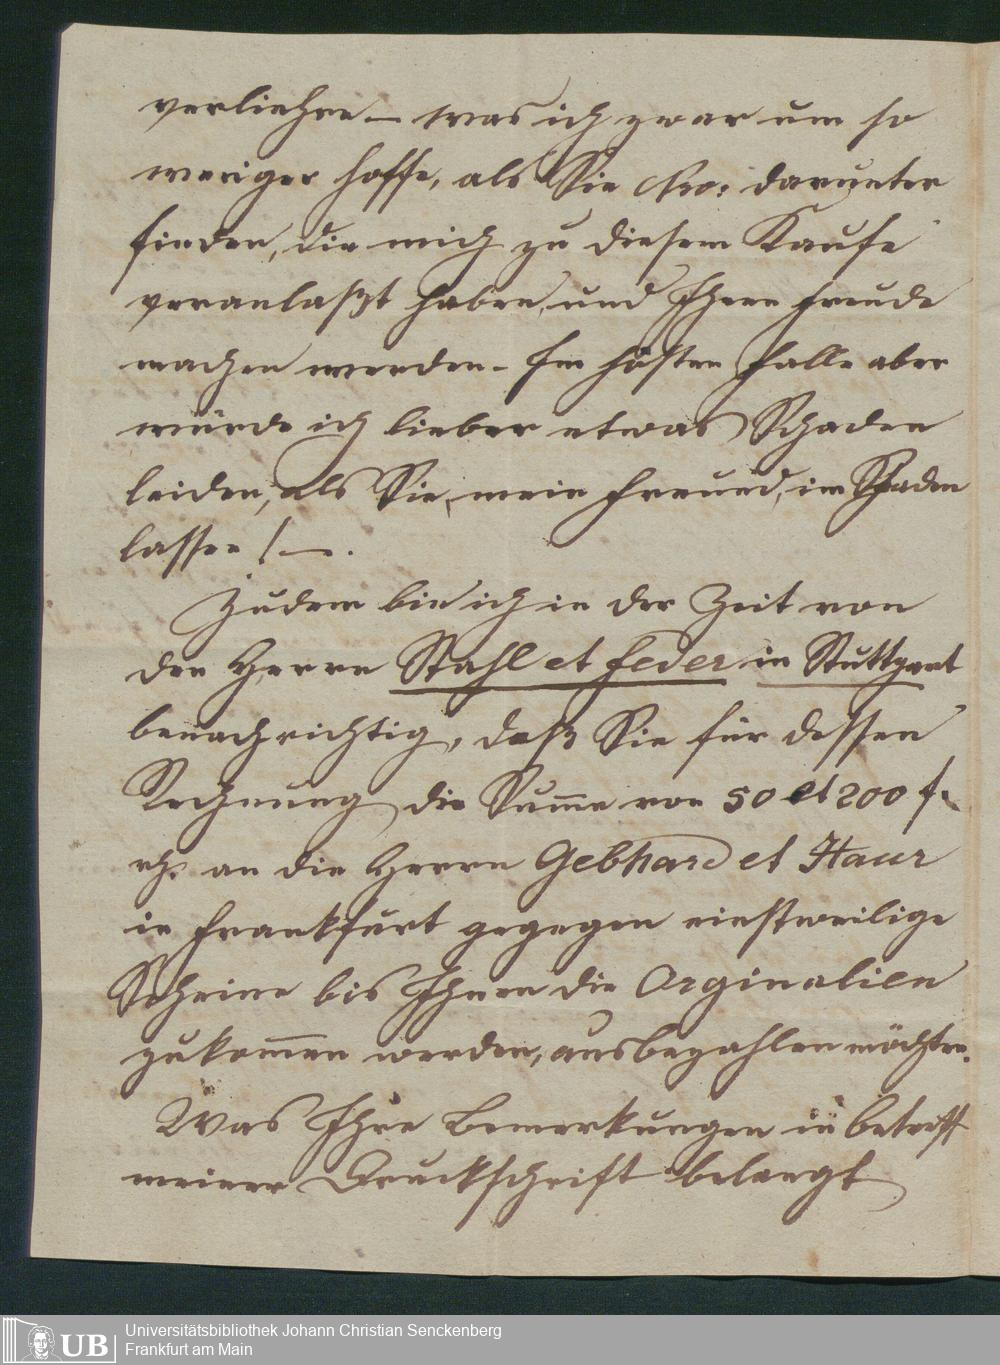 verliehre – was ich zwar um so
weniger hoffe, als Sie Nro: darunter
finden, die mich zu diesem Kaufe
veranlaßt haben, und Ihnen Freude
machen werden – Im falle aber
würde ich lieber etwas Schaden
leiden, als Sie, mein Freund, im Schaden
lassen! –.
Zudem bin ich in der Zeit von
den Herrn Stahl et Feder in Stuttgart
benachrichtig, daß Sie für dessen
Rechnung die Summe von 50 et 200 f.
rh. an die Herrn Gebhard et Haur
in Frankfurt gegegen einstweilige
Scheine bis Ihnen die Orginalien
zukommen werden, ausbezahlen möchten.
Was Ihre Bemerkungen in betreff
meiner Druckschrift belangt
Universitätsbibliothek Johann Christian Senckenberg
Frankfurt am Main
UB